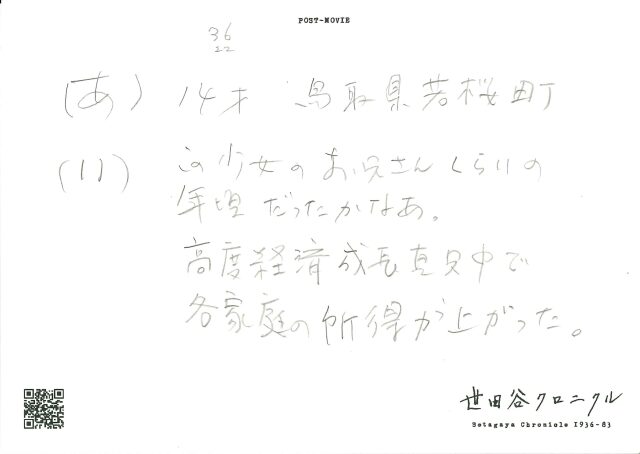 POST-MOVIE
36
22
(あ) 14才 鳥取県若桜町
(い) この少女のお兄さんくらいの
年埋だったかなあ。
高度経済成長真只中で
各家庭の所得が上がった。
世田谷クロニクル
Setagaya Chronicle 1936-83